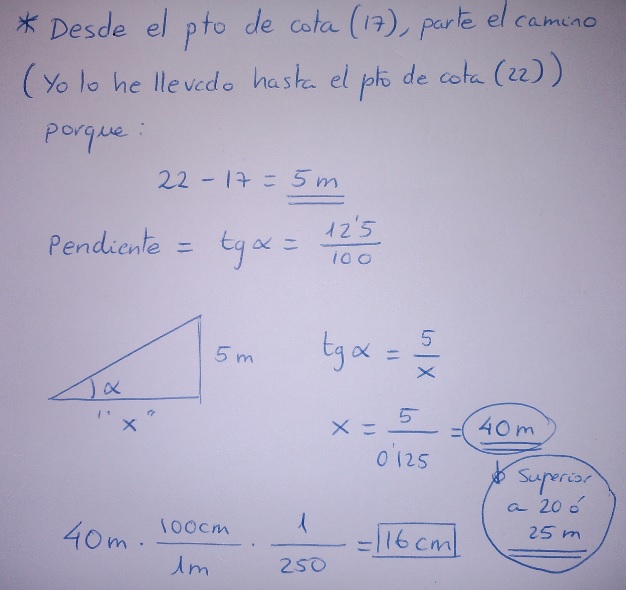 * Desde el pto de cota (17), parte el camino
(Yo lo he llevado hasta el pto de cota (22))
porque:
22 - 17 = 5 m
Pendiente = tg α = 12'5 / 100
α
5 m
"x"
tg α = 5 / x
x = 5 / 0'125 = 40 m
Superior
a 20 ó
25 m
40 m · 100 cm / 1 m · 1 / 250 = 16 cm